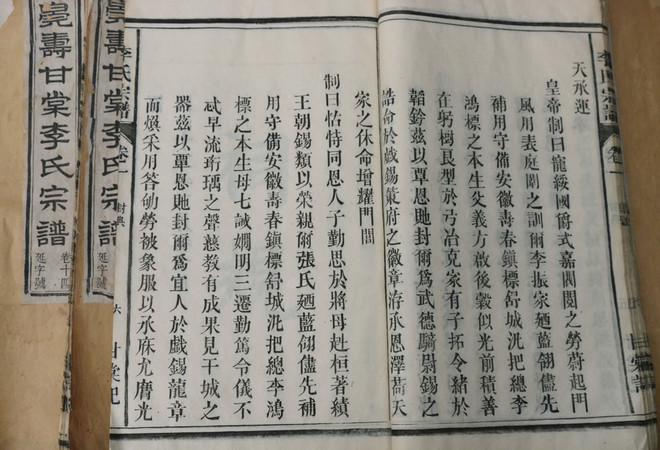 天承運
皇帝制曰寵綏國爵式嘉閥閱之勞蔚起門
風用表庭闈之訓爾李振家廼藍翎儘先
補用守備安徽壽春鎮標舒城汛把總李
鴻標之本生父義方啟後穀似光前積善
在躬樹良型於弓冶克家有子拓令緒於
韜鈐茲以覃恩貤封爾爲武德騎尉錫之
誥命於戲錫策府之徽章洊承恩澤荷天
家之休命增耀門閭
制曰怙恃同恩人子勤思於將母赳桓著績
王朝錫類以榮親爾張氏廼藍翎儘先補
用守備安徽壽春鎮標舒城汛把總李鴻
標之本生母七誡嫻明三遷勤篤令儀不
忒早流珩瑀之聲慈教有成果見干城之
器茲以覃恩貤封爾爲宜人於戲錫龍章
而煥采用答劬勞被象服以承庥尤膺光
李氏宗譜 卷一 封典 六
壽甘棠李氏宗譜
延字號
壽甘棠李氏宗譜 卷十四
延字號